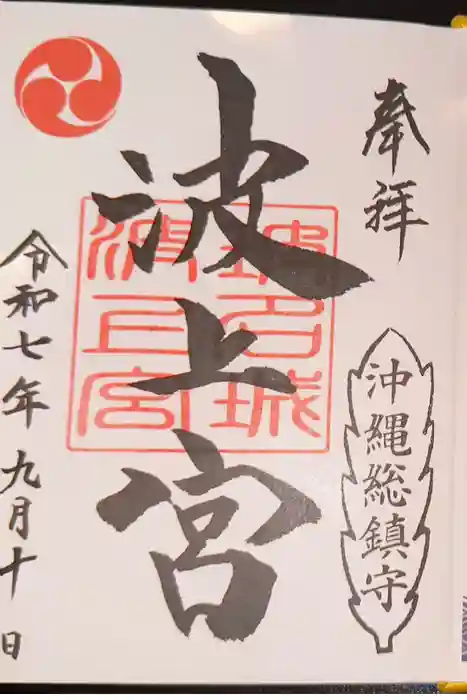 奉拝
沖縄総鎮守
波上宮
波上宮
令和七年九月十日